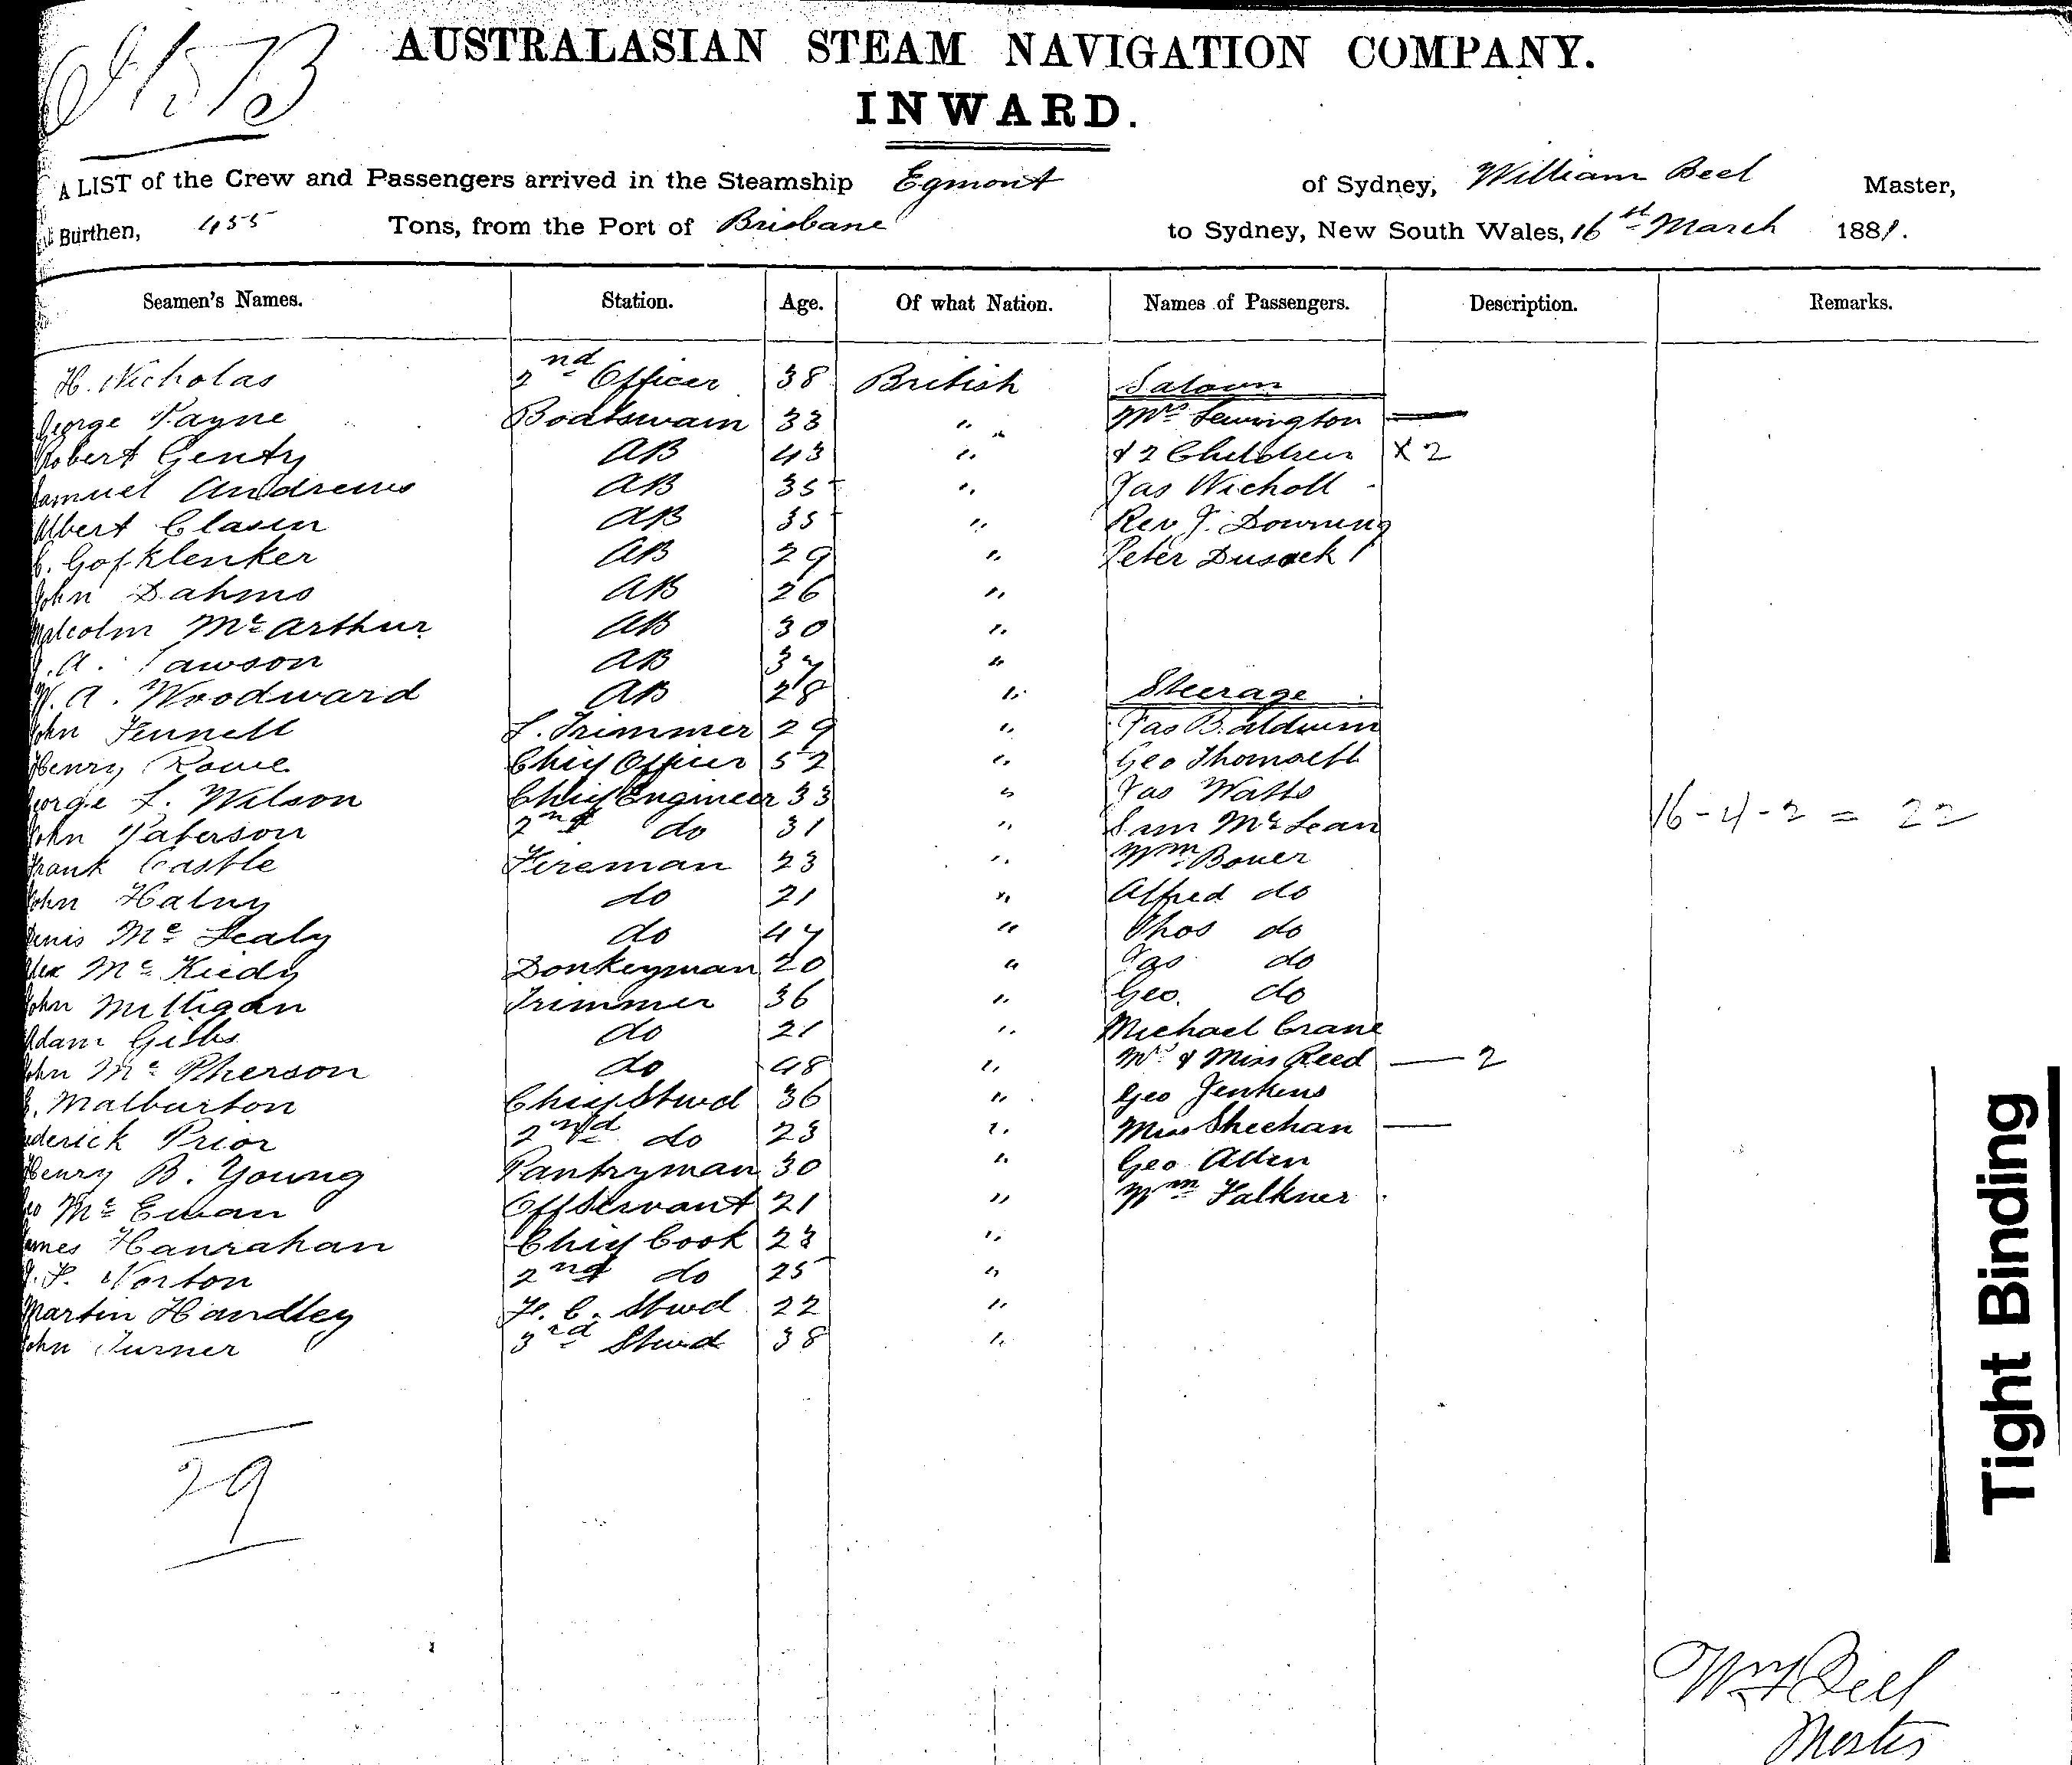 AUSTRALASIAN STEAM NAVIGATION COMPANY.
INWARD.
A LIST of the Crew and Passengers arrived in the Steamship Egmont of Sydney, William Beel Master,
Burthen, 455 Tons, from the Port of Brisbane to Sydney, New South Wales, 16th March 1881.
Seamen's Names. Station. Age. Of what Nation. Names of Passengers. Description. Remarks.
H. Nicholas 2nd Officer 38 British Saloon
George Payne Boatswain 33 " Mrs —
Robert Genty AB 43 " & 2 Children X 2
Samuel Andrews AB 35 " Jas Nicholl
Albert Clasen AB 35 " Rev J. Downing
AB 29 " Peter Dusack
John Dahms AB 26 "
Malcolm McArthur AB 30 "
A. Lawson AB 37 "
W. A. Woodward AB 28 " Steerage
John Fennell L. Trimmer 29 " Jas Baldwin
Henry Rowe Chief Officer 52 " Geo
George L. Wilson Chief Engineer 33 " Jas Watts 16-4-2 = 22
John Paterson 2nd do 31 " Sam McLean
Frank Castle Fireman 23 " Wm Bower
John do 21 " Alfred do
Denis Mc do 47 " Thos do
Alex Mc Donkeyman 20 " Jas do
John Milligan Trimmer 36 " Geo. do
Adam Gibbs do 21 " Michael Crane
John McPherson do 48 " Mrs & Miss Reed — 2
Malburton Chief Stwd 36 " Geo Jenkins
Prior 2nd do 23 " Miss Sheehan —
Henry B. Young Pantryman 30 " Geo Allen
Geo McEwan Off Servant 21 " Wm Falkner
James Hanrahan Chief Cook 23 "
Norton 2nd do 25 "
Martin Handley F. C. Stwd 22 "
John Turner 3rd Stwd 38 "
29
Tight Binding
Wm Beel
Master